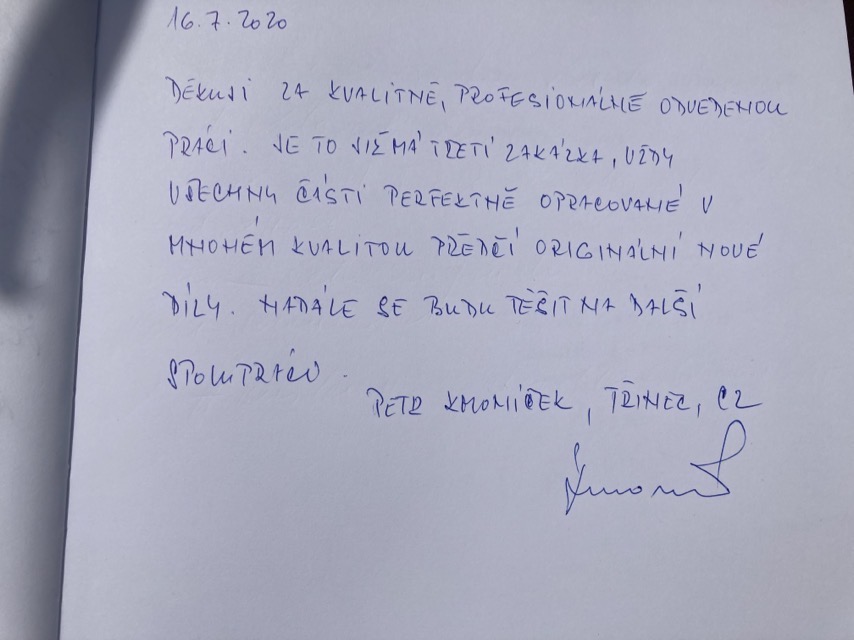 16.7.2020
DĚKUJI ZA KVALITNĚ, PROFESIONÁLNĚ ODVEDENOU
PRÁCI. JE TO JIŽ MÁ TŘETÍ ZAKÁZKA, VŽDY
VŠECHNY ČÁSTI PERFEKTNĚ OPRACOVANÉ V
MNOHÉM KVALITOU PŘEDČÍ ORIGINÁLNÍ NOVÉ
DÍLY. NADÁLE SE BUDU TĚŠIT NA DALŠÍ
SPOLUPRÁCI.
PETR KMONÍČEK, TŘINEC, CZ